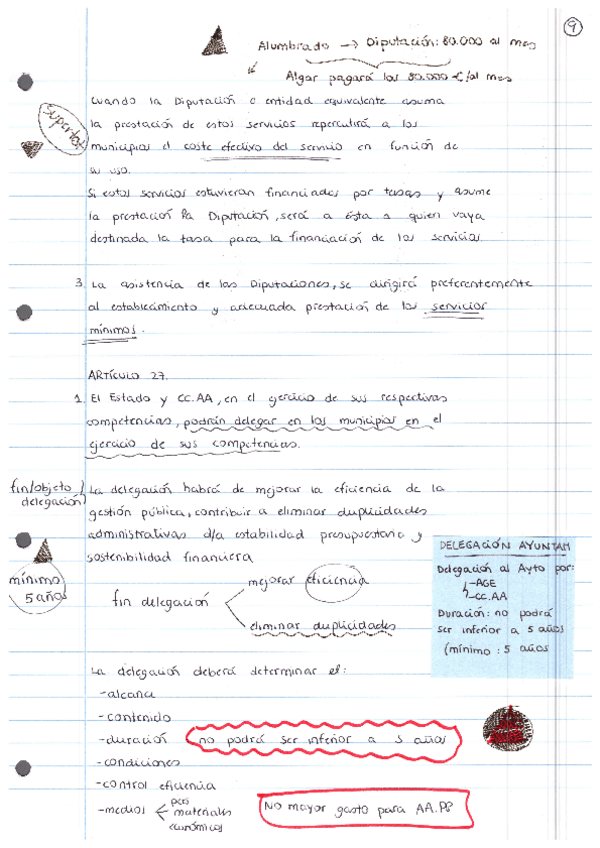 9
Alumbrado → Diputación: 80.000 al mes
Algar pagará los 80.000 €/al mes
Cuando la Diputación o entidad equivalente asuma
la prestación de estos servicios repercutirá a los
municipios el coste efectivo del servicio en función de
su uso.
Si estos servicios estuvieran financiados por tasas y asume
la prestación la Diputación, será a ésta a quien vaya
destinada la tasa para la financiación de los servicios.
3. La asistencia de las Diputaciones, se dirigirá preferentemente
al establecimiento y adecuada prestación de los servicios
mínimos.
ARTÍCULO 27.
1. El Estado y CC.AA, en el ejercicio de sus respectivas
competencias, podrán delegar en los municipios en el
ejercicio de sus competencias.
fin/objeto
delegación
La delegación habrá de mejorar la eficiencia de la
gestión pública, contribuir a eliminar duplicidades
administrativas d/a estabilidad presupuestaria y
sostenibilidad financiera
mínimo
5 años
fin delegación
mejorar eficiencia
eliminar duplicidades
DELEGACIÓN AYUNTAM
Delegación al Ayto por:
-AGE
-CC.AA
Duración: no podrá
ser inferior a 5 años
(mínimo: 5 años
La delegación deberá determinar el:
-alcance
-contenido
-duración no podrá ser inferior a 5 años
-condiciones
-control eficiencia
-medios
materiales
económicos
No mayor gasto para AA.PP